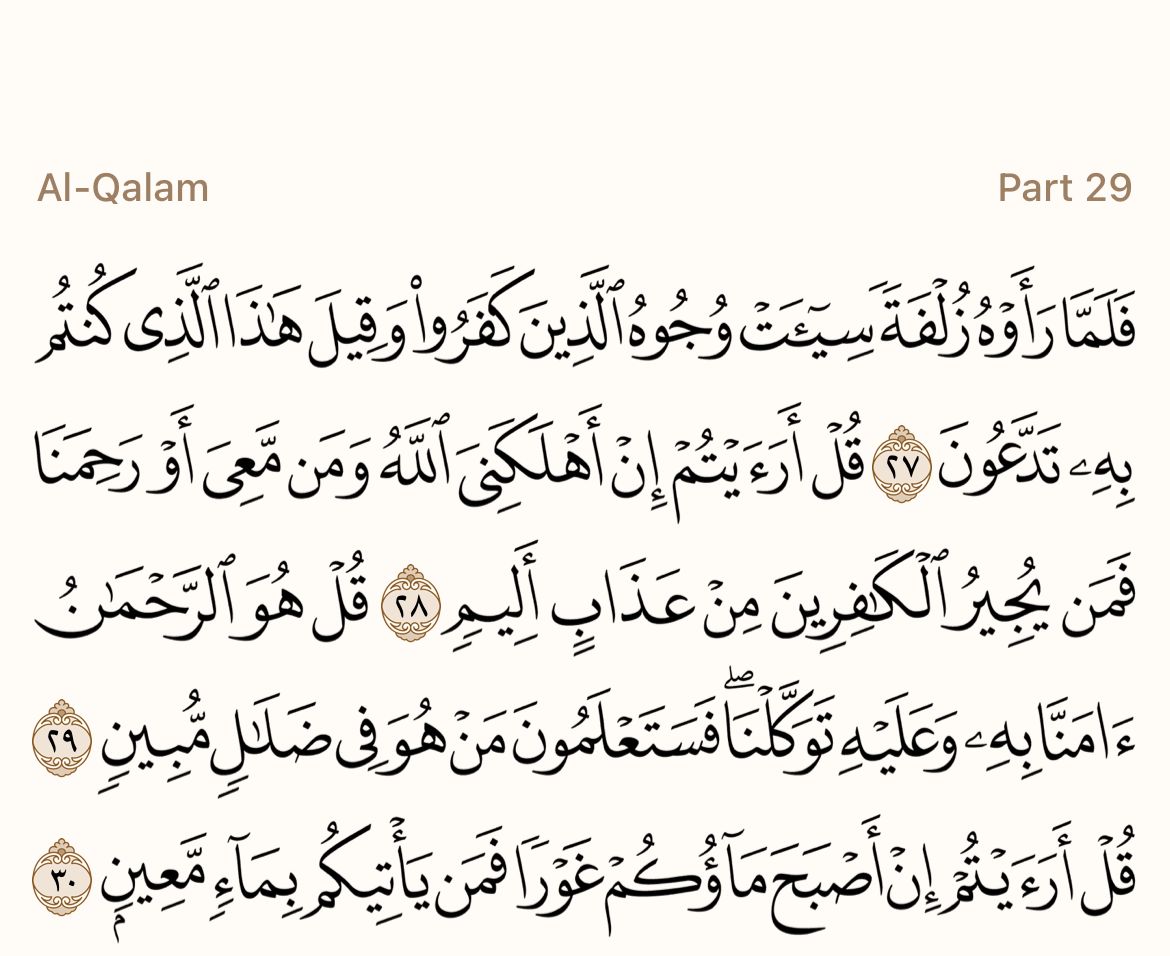 Al-Qalam Part 29
فَلَمَّا رَأَوْهُ زُلْفَةً سِيٓـَٔتْ وُجُوهُ ٱلَّذِينَ كَفَرُوا۟ وَقِيلَ هَٰذَا ٱلَّذِى كُنتُم
بِهِۦ تَدَّعُونَ ٢٧ قُلْ أَرَءَيْتُمْ إِنْ أَهْلَكَنِىَ ٱللَّهُ وَمَن مَّعِىَ أَوْ رَحِمَنَا
فَمَن يُجِيرُ ٱلْكَٰفِرِينَ مِنْ عَذَابٍ أَلِيمٍ ٢٨ قُلْ هُوَ ٱلرَّحْمَٰنُ
ءَامَنَّا بِهِۦ وَعَلَيْهِ تَوَكَّلْنَا ۖ فَسَتَعْلَمُونَ مَنْ هُوَ فِى ضَلَٰلٍ مُّبِينٍ ٢٩
قُلْ أَرَءَيْتُمْ إِنْ أَصْبَحَ مَآؤُكُمْ غَوْرًا فَمَن يَأْتِيكُم بِمَآءٍ مَّعِينٍۭ ٣٠